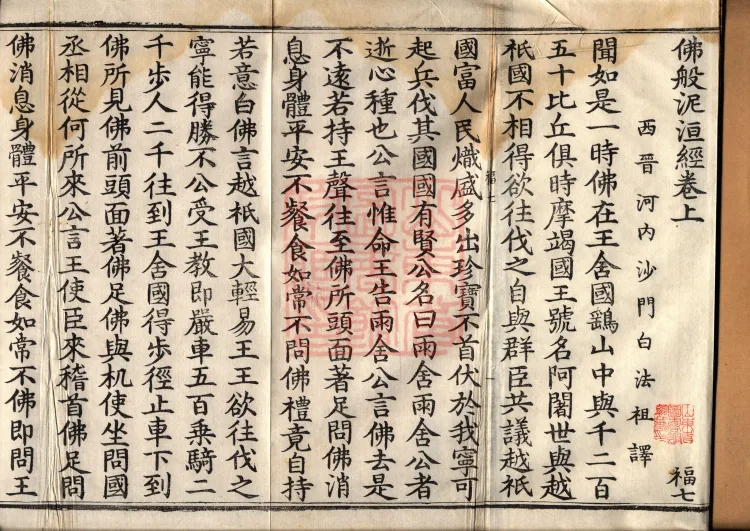 佛般泥洹經卷上
福七
西晉河內沙門白法祖譯
聞如是一時佛在王舍國鷂山中與千二百
五十比丘俱時摩竭國王號名阿闍世與越
祇國不相得欲往伐之自與群臣共議越祇
國富人民熾盛多出珍寶不首伏於我寧可
起兵伐其國國有賢公名曰雨舍雨舍公者
逝心種也公言惟命王告雨舍公言佛去是
不遠若持王聲往至佛所頭面著足問佛消
息身體平安不餐食如常不問佛禮竟自持
若意白佛言越祇國大輕易王王欲往伐之
寧能得勝不公受王教即嚴車五百乘騎二
千步人二千往到王舍國得步徑止車下到
佛所見佛前頭面著佛足佛與机使坐問國
丞相從何所來公言王使臣來稽首佛足問
佛消息身體平安不餐食如常不佛即問王